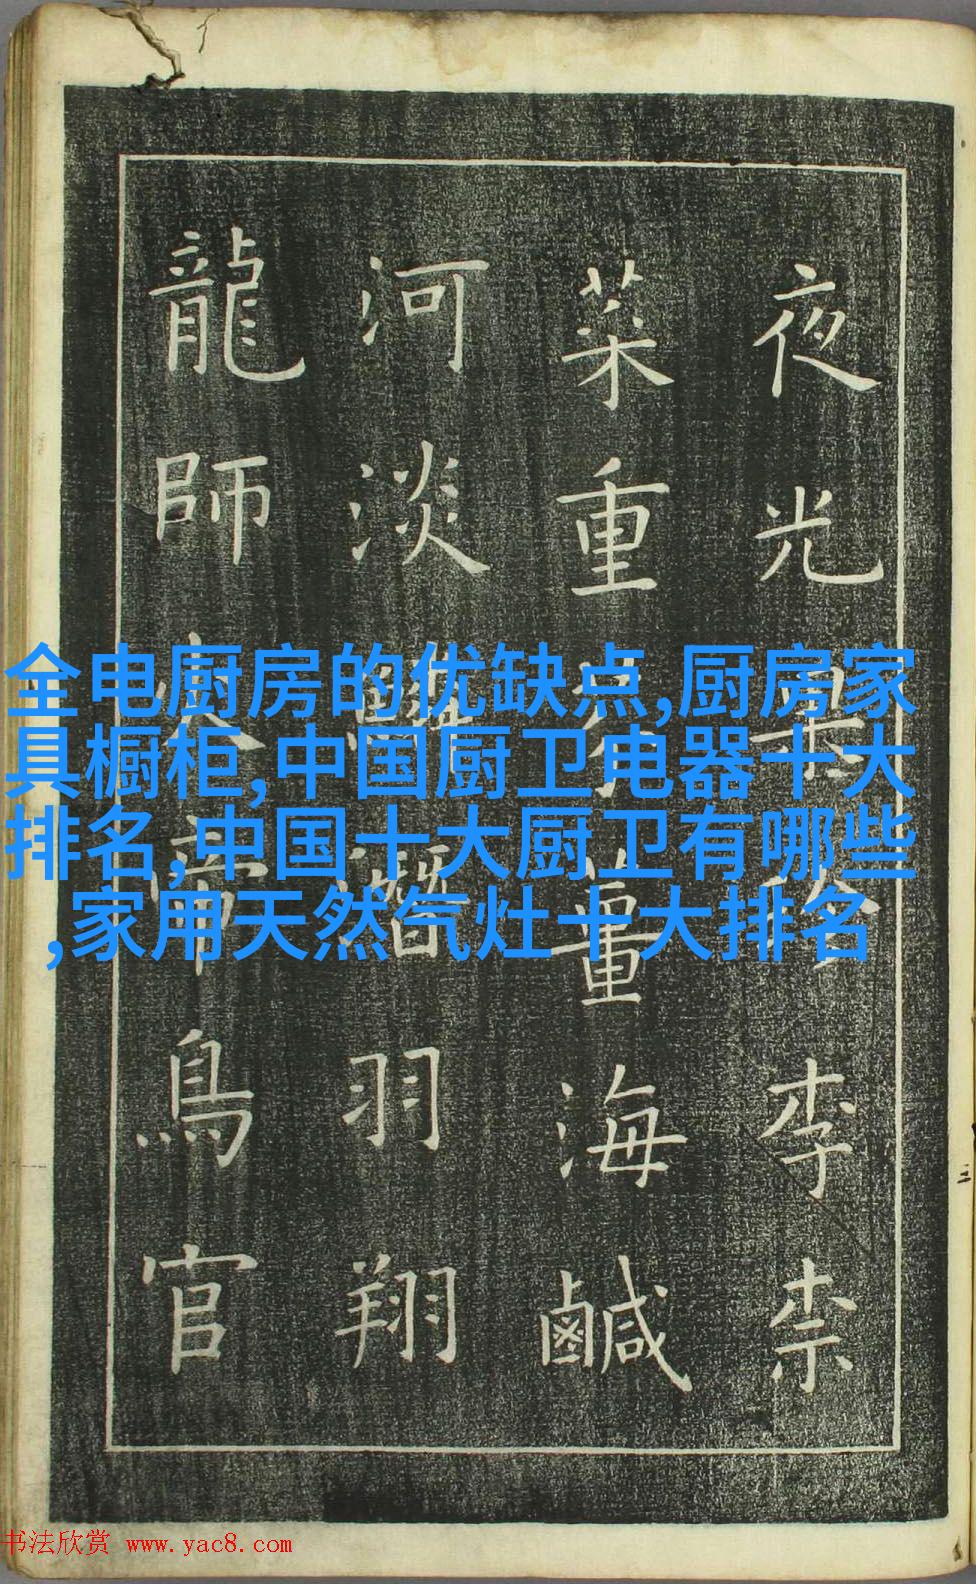 夜光果珍李柰
菜重芥薑海鹹
河淡鱗潛羽翔
龍師火帝鳥官
全电厨房的优缺点,厨房家
具橱柜,中国厨卫电器十大
排名,中国十大厨卫有哪些
,家用天然气灶十大排名
书法欣赏 www.yac8.com